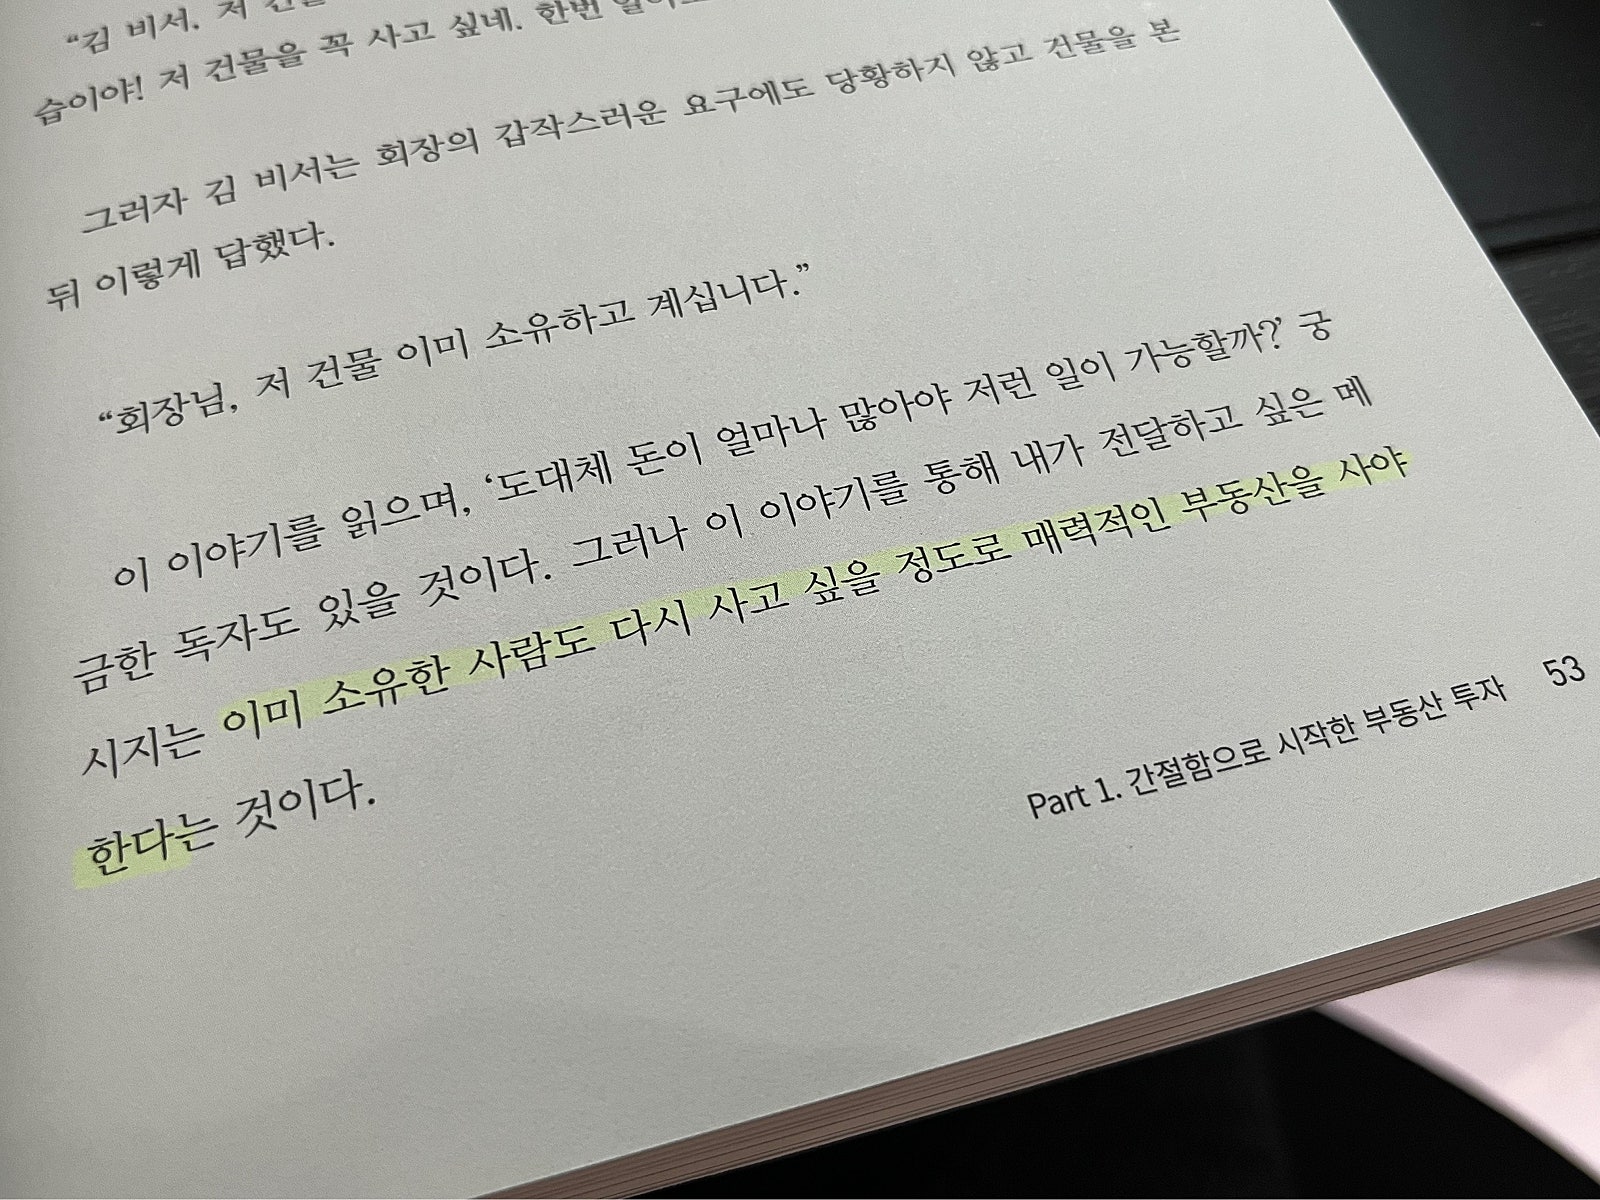 “김 비서. 저 건물
습이야! 저 건물을 꼭 사고 싶네. 한번
그러자 김 비서는 회장의 갑작스러운 요구에도 당황하지 않고 건물을 본
뒤 이렇게 답했다.
“회장님, 저 건물 이미 소유하고 계십니다.”
이 이야기를 읽으며, ‘도대체 돈이 얼마나 많아야 저런 일이 가능할까?’ 궁
금한 독자도 있을 것이다. 그러나 이 이야기를 통해 내가 전달하고 싶은 메
시지는 이미 소유한 사람도 다시 사고 싶을 정도로 매력적인 부동산을 사야
한다는 것이다.
Part 1. 간절함으로 시작한 부동산 투자 53